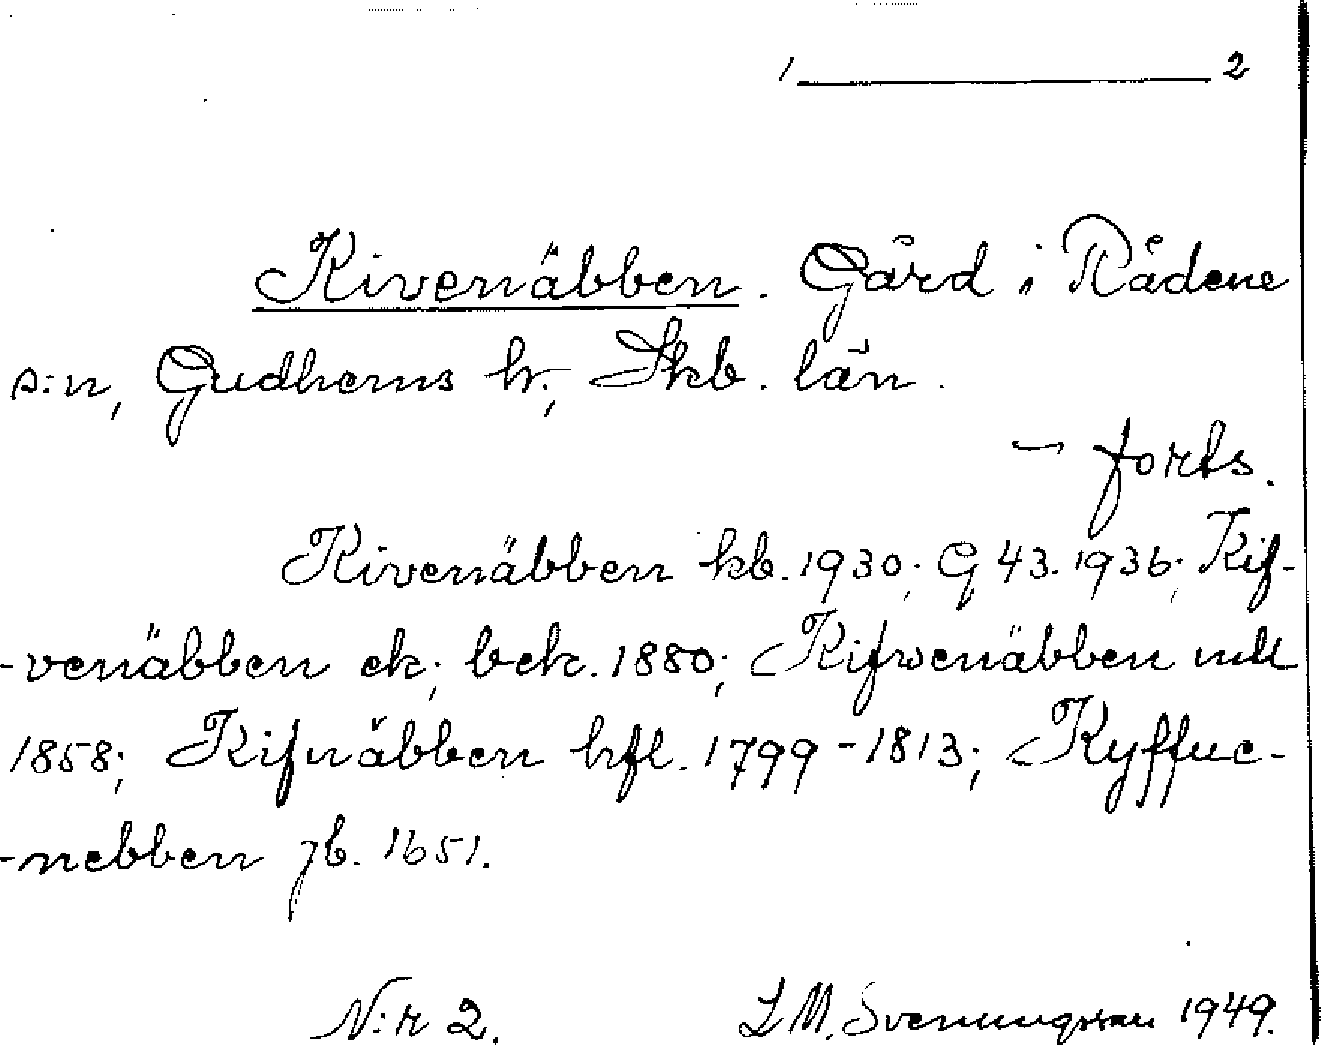 1 2
Kivenäbben. Gård i Rådene
s:n, Gudhems h., Skb. län.
– forts.
Kivenäbben kb. 1930; G 43. 1936; Kif-
-venäbben ek. bek. 1880; Kifvenäbben
1858; Kifnäbben hfl. 1799-1813; Kyffue-
-nebben jb. 1651.
N:r 2. L M. Svenungsson 1949.